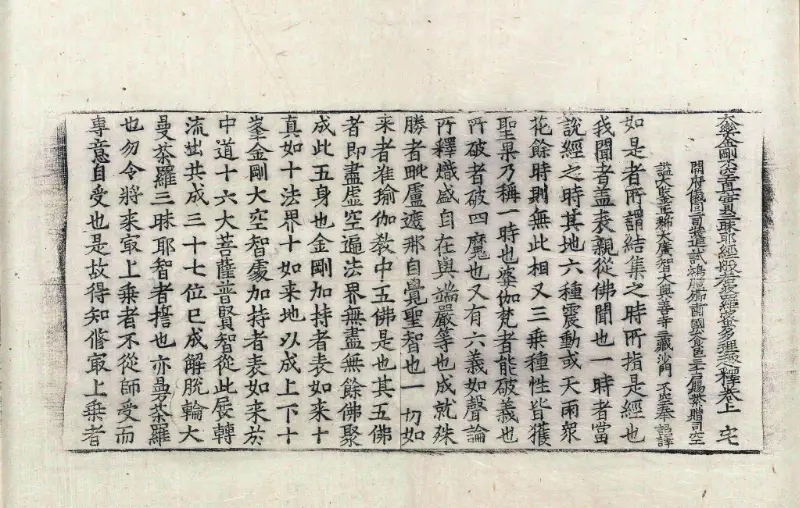 大樂金剛不空真實三昧耶經般若波羅蜜多理趣釋卷上 宅
開府儀同三司特進試鴻臚卿肅國公食邑三千户賜紫贈司空
謚大鑒正號大廣智大興善寺三藏沙門不空奉 詔譯
如是者所謂結集之時所指是經也
我聞者盖表親從佛聞也一時者當
說經之時其地六種震動或天雨衆
花餘時則無此相又三乘種性皆獲
聖果乃稱一時也婆伽梵者能破義也
所破者破四魔也又有六義如聲論
所釋熾盛自在與端嚴等也成就殊
勝者毗盧遮那自覺聖智也一切如
来者准瑜伽教中五佛是也其五佛
者即盡虛空遍法界無盡無餘佛聚
成此五身也金剛加持者表如来十
真如十法界十如来地以成上下十
峯金剛大空智處加持者表如来於
中道十六大菩薩普賢智從此展轉
流出共成三十七位已成解脫輪大
曼荼羅三昧耶智者擔也亦曼荼羅
也勿令將来冣上乘者不從師受而
專意自受也是故得知脩冣上乘者